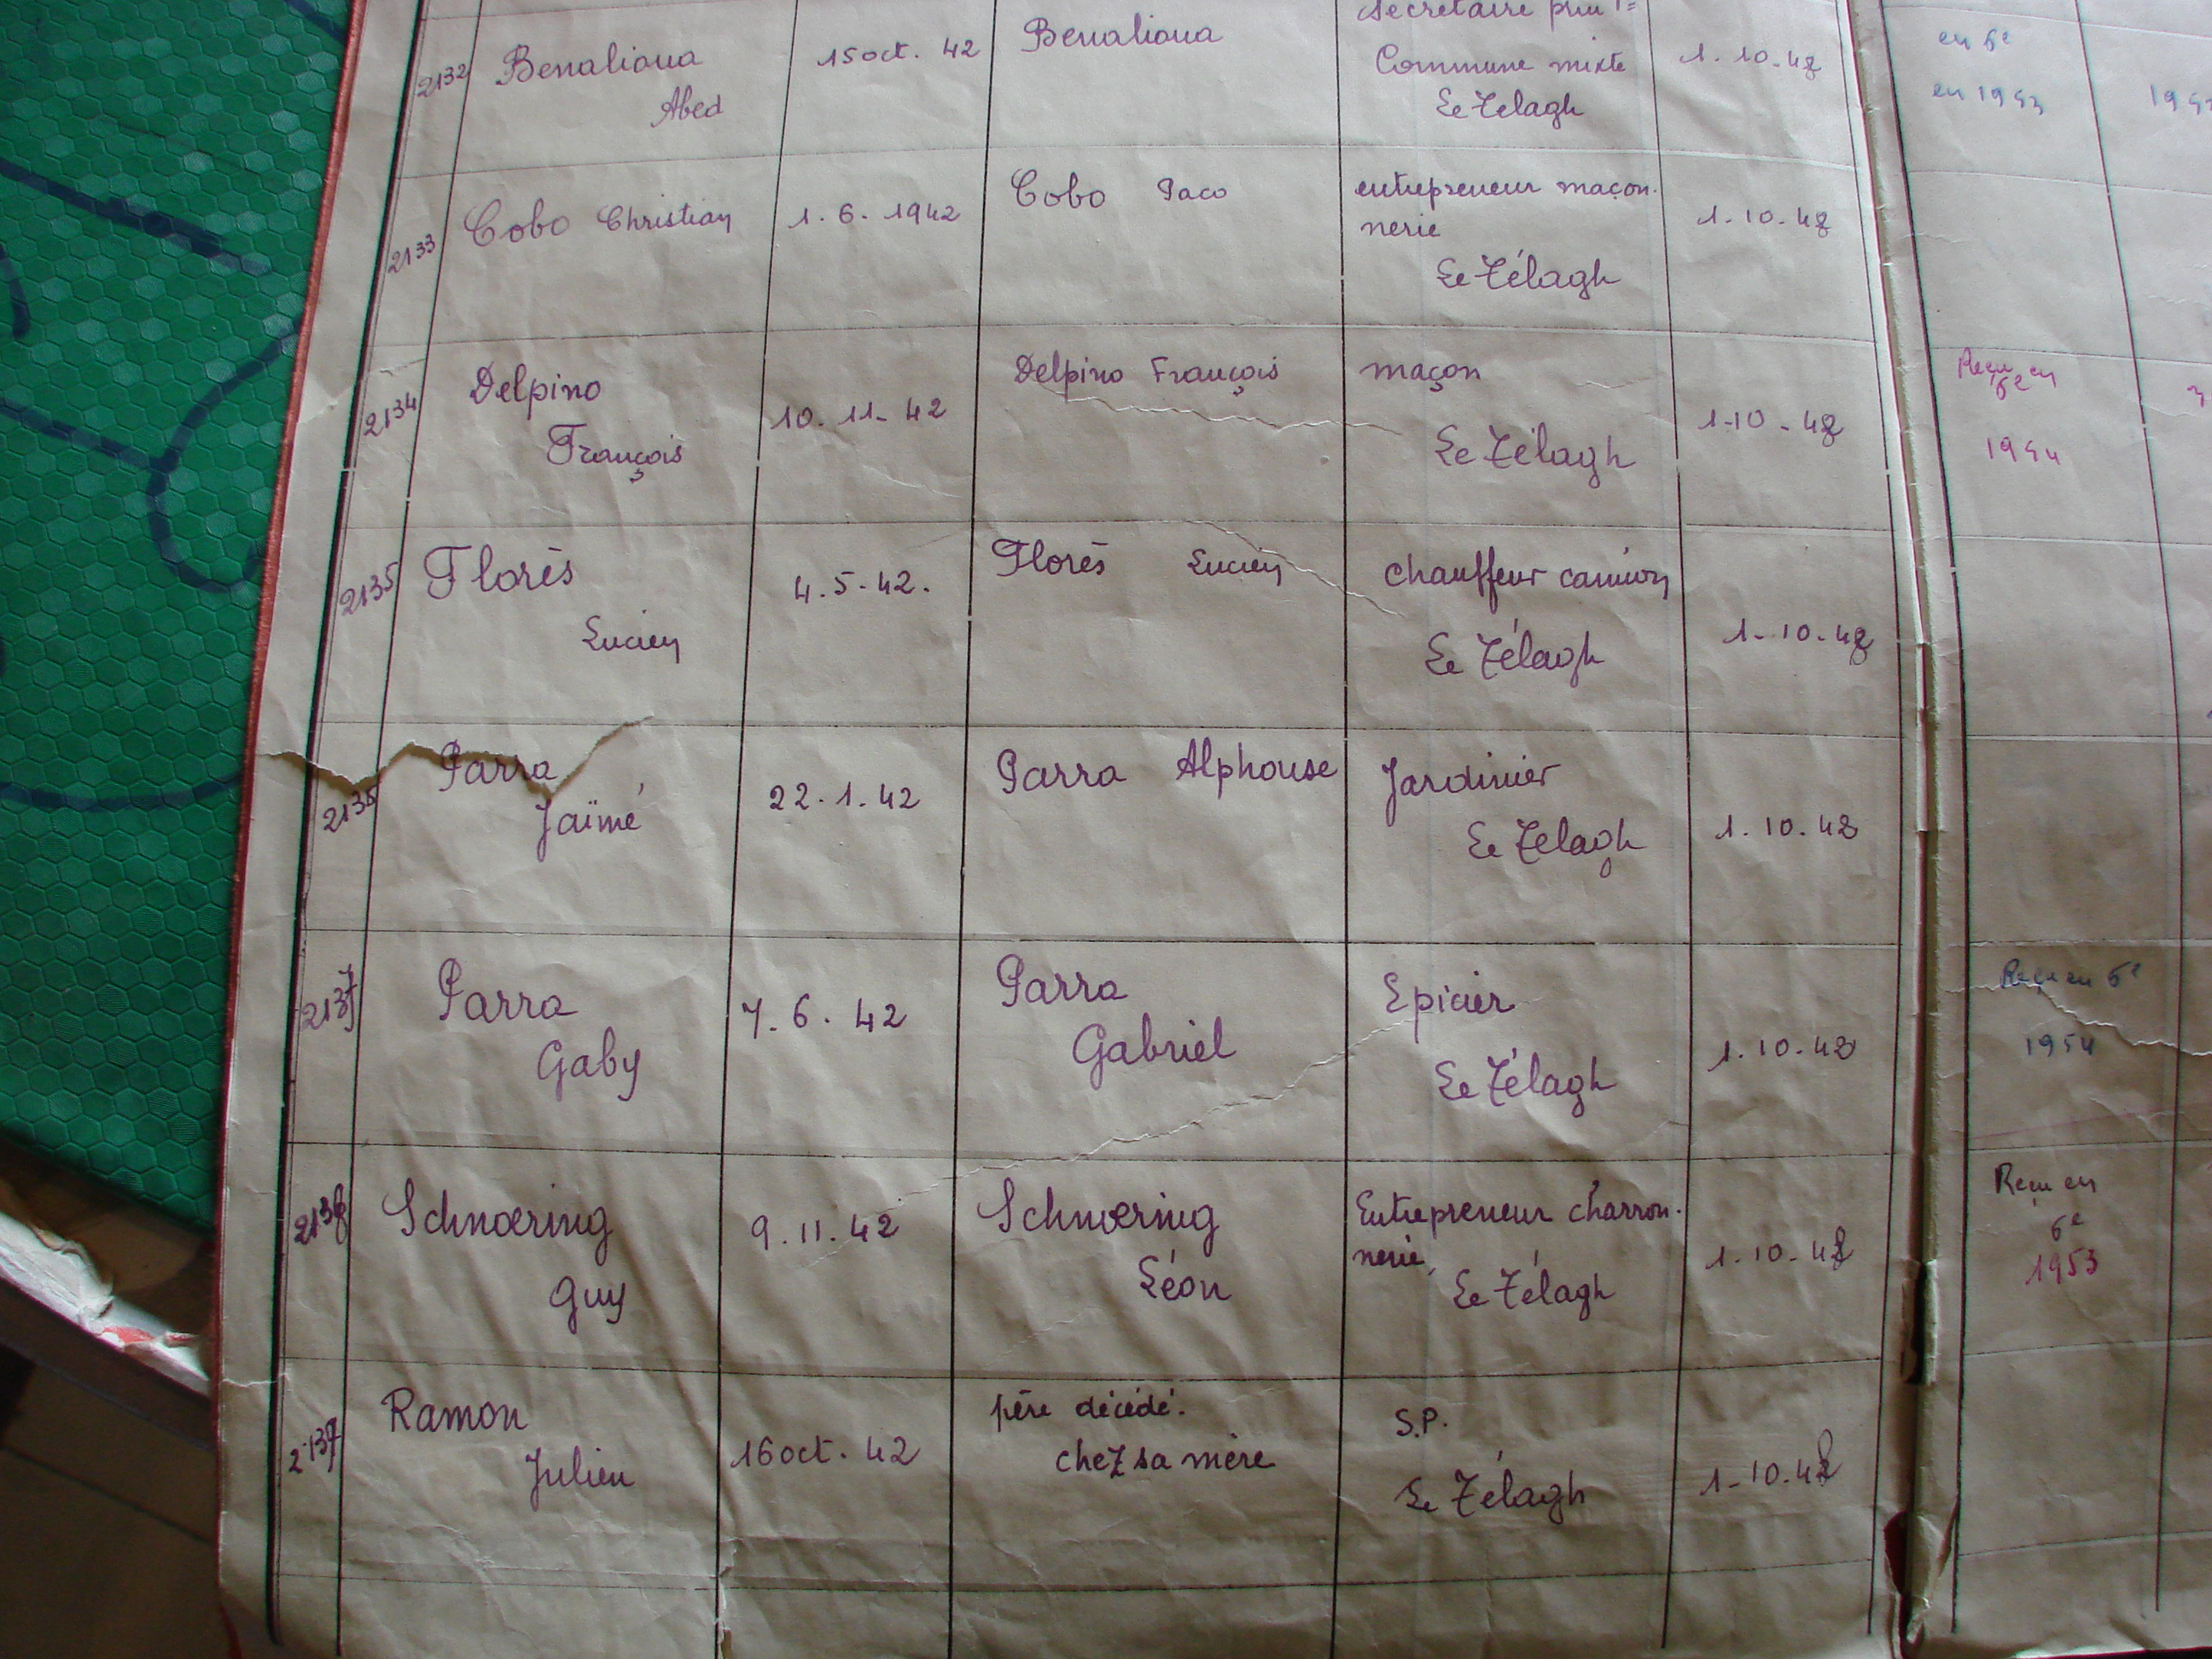 2132 Benalioua 15 oct. 42 Benalioua Secrétaire 1. 10. 48 en 6e
Abed Commune mixte en 1953
Le Télagh
2133 Cobo Christian 1. 6. 1942 Cobo Paco entrepreneur maçon- 1. 10. 48
nerie
Le Télagh
2134 Delpino 10. 11. 42 Delpino François maçon 1-10-48 Reçu en
François Le Télagh 6e
1954
2135 Florès 4. 5. 42. Florès Lucien chauffeur camion 1-10-48
Lucien Le Télagh
2136 Parra 22. 1. 42 Parra Alphonse Jardinier 1. 10. 48
Jaïmé Le Télagh
2137 Parra 7. 6. 42 Parra Epicier 1. 10. 48 Reçu en 6e
Gaby Gabriel Le Télagh 1954
2138 Schnoering 9. 11. 42 Schnoering Entrepreneur charron- 1. 10. 48 Reçu en
Guy Léon nerie, Le Télagh 6e
1953
Ramon 16 oct. 42 père décédé. S.P. 1-10.48
Julien chez sa mère Le Télagh